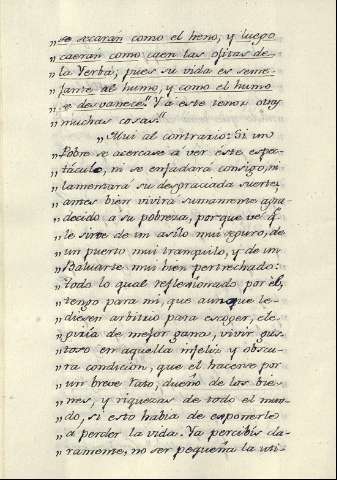 „ se secaràn como el heno, y luego
„ caeràn como caen las ojitas de
„ la Yerba; pues su vida es seme-
„ jante al humo, y como el humo
„ se desvanece." Y a este tenor otras
„ muchas cosas."
„ Mui al contrario: Si un
„ Pobre se acercase à vèr este espec-
„ tàculo, ni se enfadarà consigo, ni
„ lamentarà su desgraciada suerte;
„ antes bien vivirà sumamente agra-
„ decido a su pobreza, porque ve q.e
„ le sirve de un asilo mui seguro, de
„ un puerto mui tranquilo, y de un
„ Baluarte mui bien pertrechado:
„ Todo lo qual reflexionado por el,
„ tengo para mi, que aunque le
„ diesen arbitrio para escoger, ele-
„ giria de mejor gana, vivir gus-
„ toso en aquella infeliz y obscu-
„ ra condicion, que el hacerse por
„ un breve rato, dueño de los bie-
„ nes, y riquezas de todo el mun-
„ do, si esto habia de esponerle
„ a perder la vida. Ya percibis cla-
„ ramente, no ser pequeña la uti-